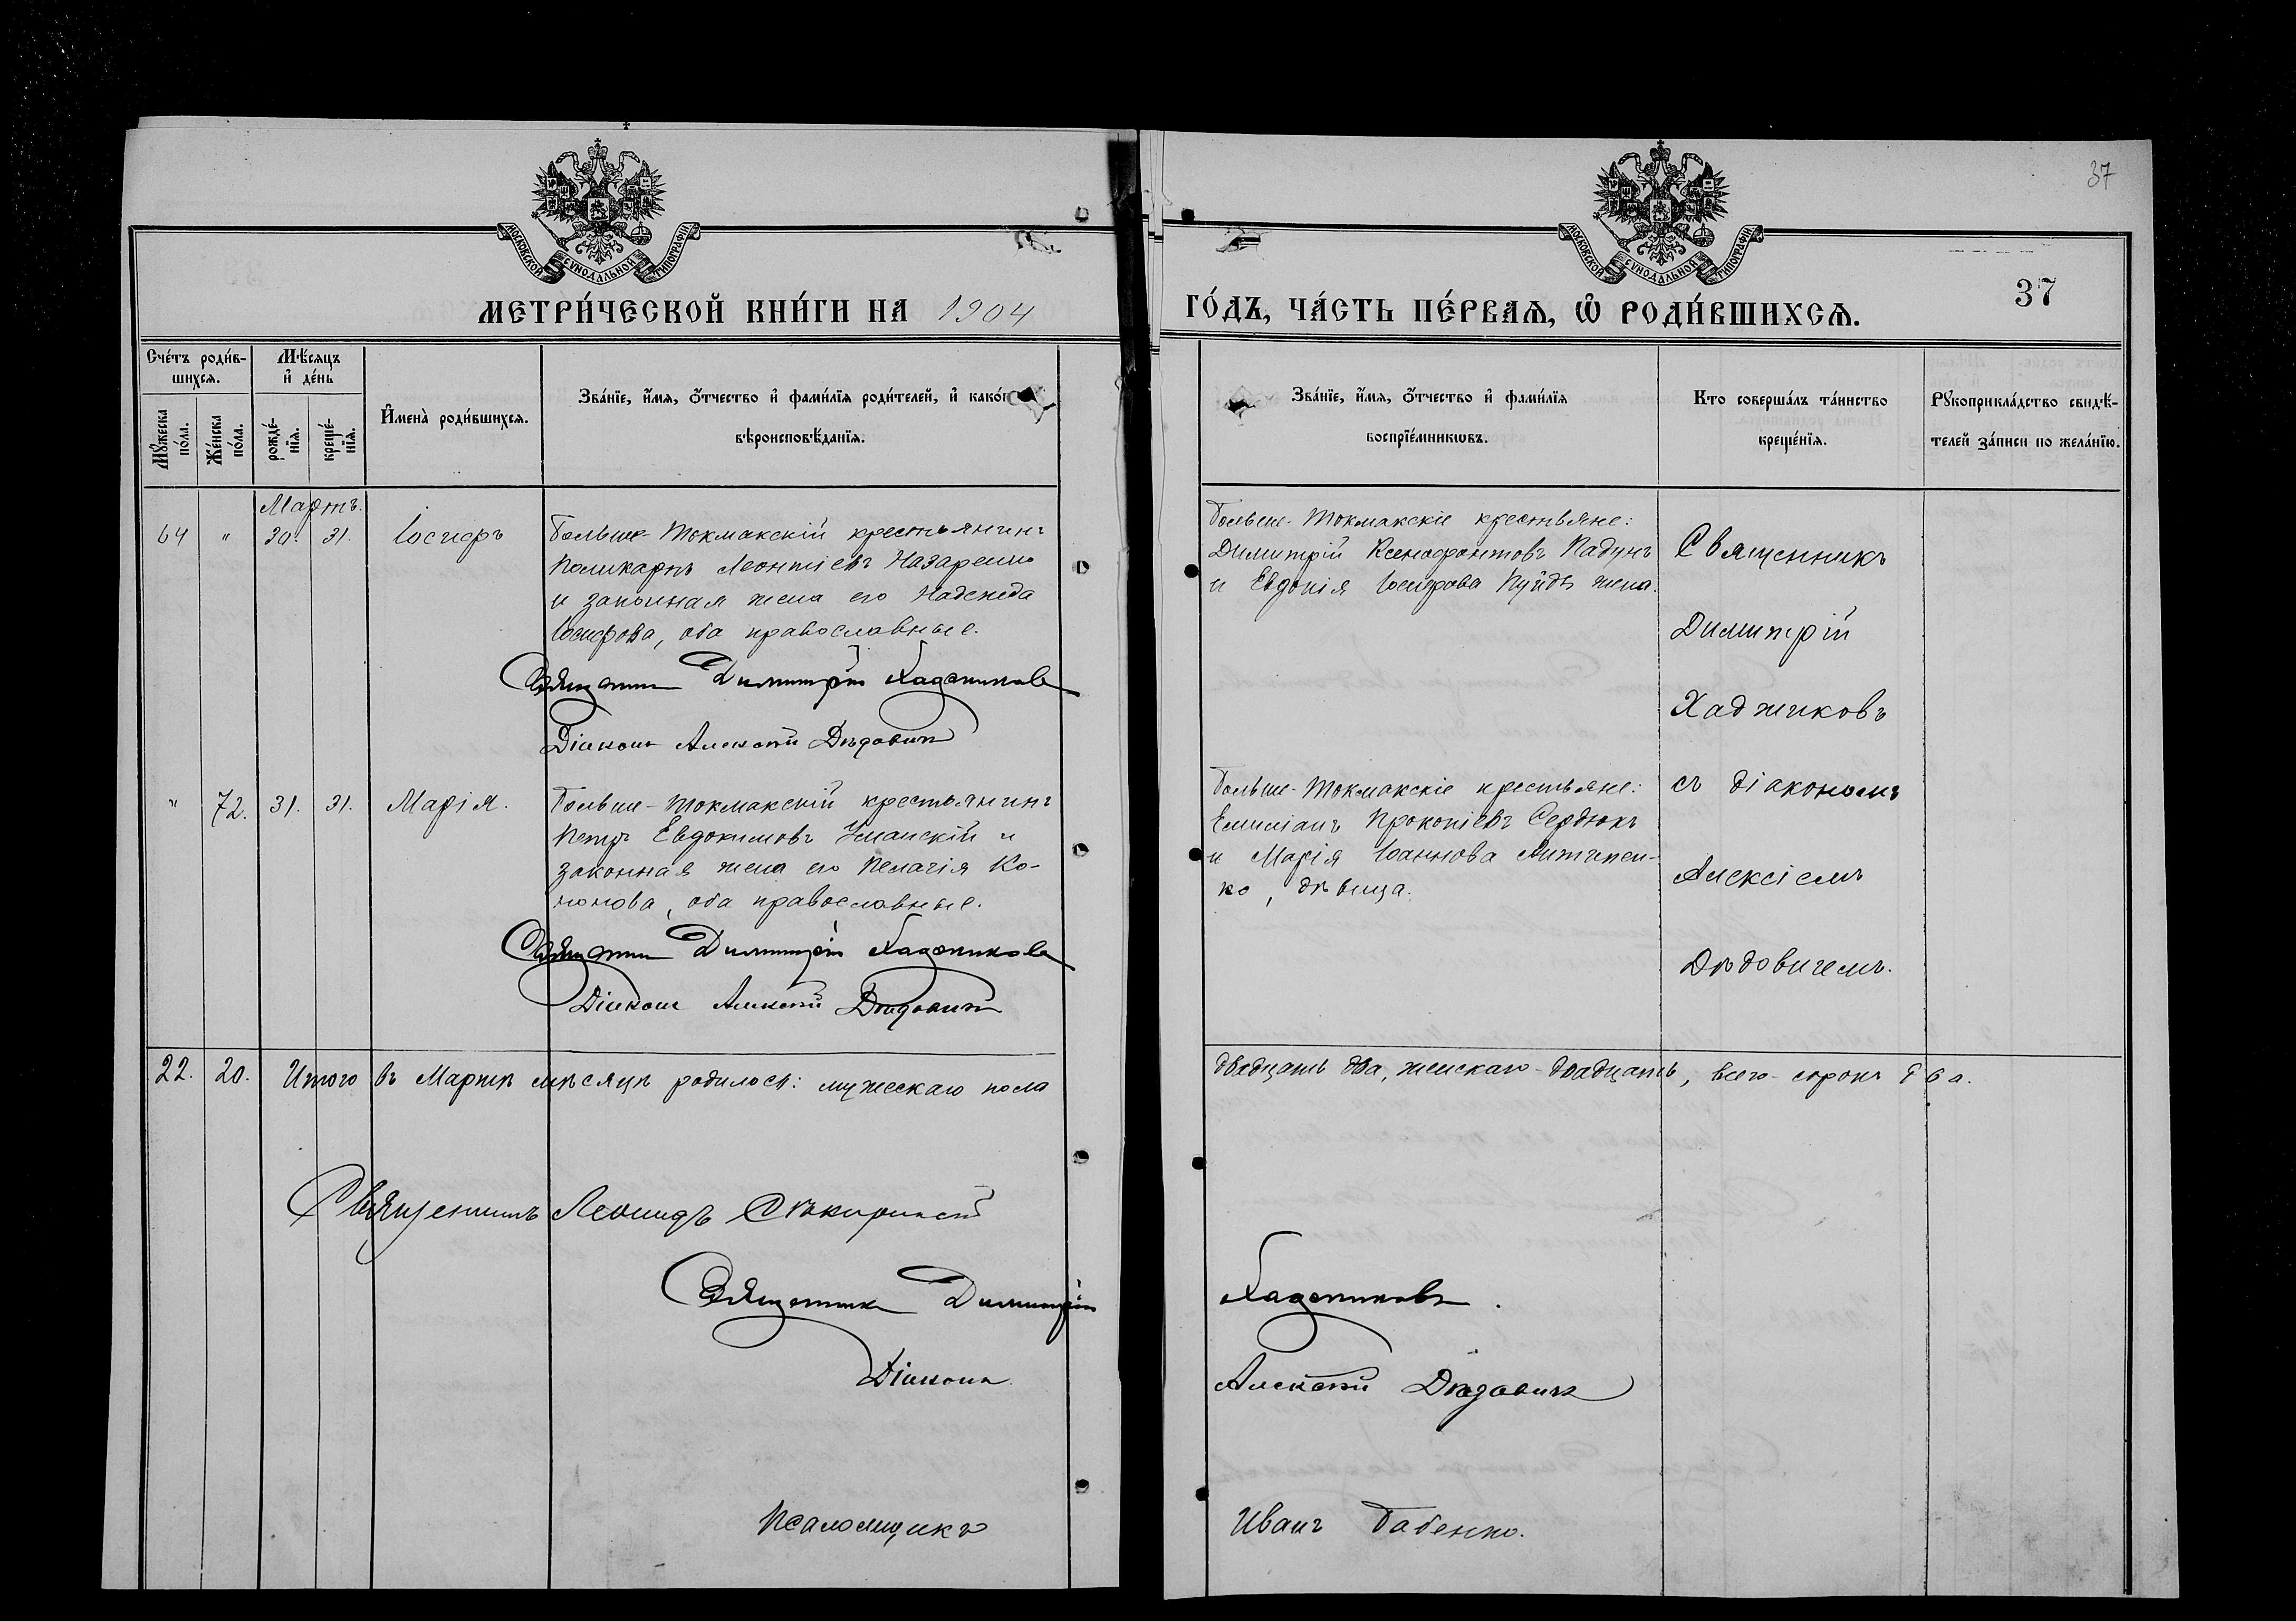 37
МОСКОВСКОЙ СѴНОДАЛЬНОЙ ТИПОГРАФІИ
МОСКОВСКОЙ СѴНОДАЛЬНОЙ ТИПОГРАФІИ
37
МЕТРИ́ЧЕСКОЙ КНИ́ГИ НА 1904
ГО́ДЪ, ЧА́СТЬ ПЕ́РВАѦ, Ѽ РОДИ́ВШИХСѦ.
Сче́тъ роди́в-
шихсѧ.
Мѣ́сѧцъ
и҆ де́нь
Мꙋ́жеска
по́ла.
Же́нска
по́ла.
рожде́-
нїѧ.
креще́-
нїѧ.
И҆мена̀ роди́вшихсѧ.
Зва́нїе, и҆́мѧ, ѻ҆́тчество и҆ фами́лїѧ роди́телей, и҆ како́г
вѣроисповѣ́данїѧ.
Зва́нїе, и҆́мѧ, ѻ҆́тчество и҆ фами́лїѧ
воспрїе́мникѡвъ.
Кто соверша́лъ та́инство
креще́нїѧ.
Рꙋкоприкла́дство свидѣ́-
телей за́писи по жела́нїю.
Мартъ.
64 " 30. 31. Іосифъ
Больше-Токмакскій крестьянинъ
Поликарпъ Леонтіевъ Назаренко
и законная жена его Надежда
Іосифова, оба православные.
Священникъ Димитрій Хаджиковъ
Діаконъ Алексѣй Дѣдовичъ
Больше-Токмакскіе крестьяне:
Димитрій Ксенофонтовъ Падунъ
и Евдокія Іосифова жена.
Священникъ
Димитрій
Хаджиковъ
съ діакономъ
Алексіемъ
Дѣдовичемъ.
" 72. 31. 31. Марія.
Больше-Токмакскій крестьянинъ
Петръ Евдокимовъ Уманскій и
законная жена его Пелагія Ко-
нонова, оба православные.
Священникъ Димитрій Хаджиковъ
Діаконъ Алексѣй Дѣдовичъ
Больше-Токмакскіе крестьяне:
Емиліанъ Прокопіевъ Сердюкъ
и Марія Іоаннова Литвинен-
ко, дѣвица.
22. 20. Итого въ Мартѣ мѣсяцѣ родилось: мужескаго пола
двадцать два, женскаго двадцать, всего сорокъ два.
Священникъ Леонидъ Сѣкиринскій
Священникъ Димитрій Хаджиковъ.
Діаконъ Алексѣй Дѣдовичъ
Псаломщикъ Иванъ Бабенко.